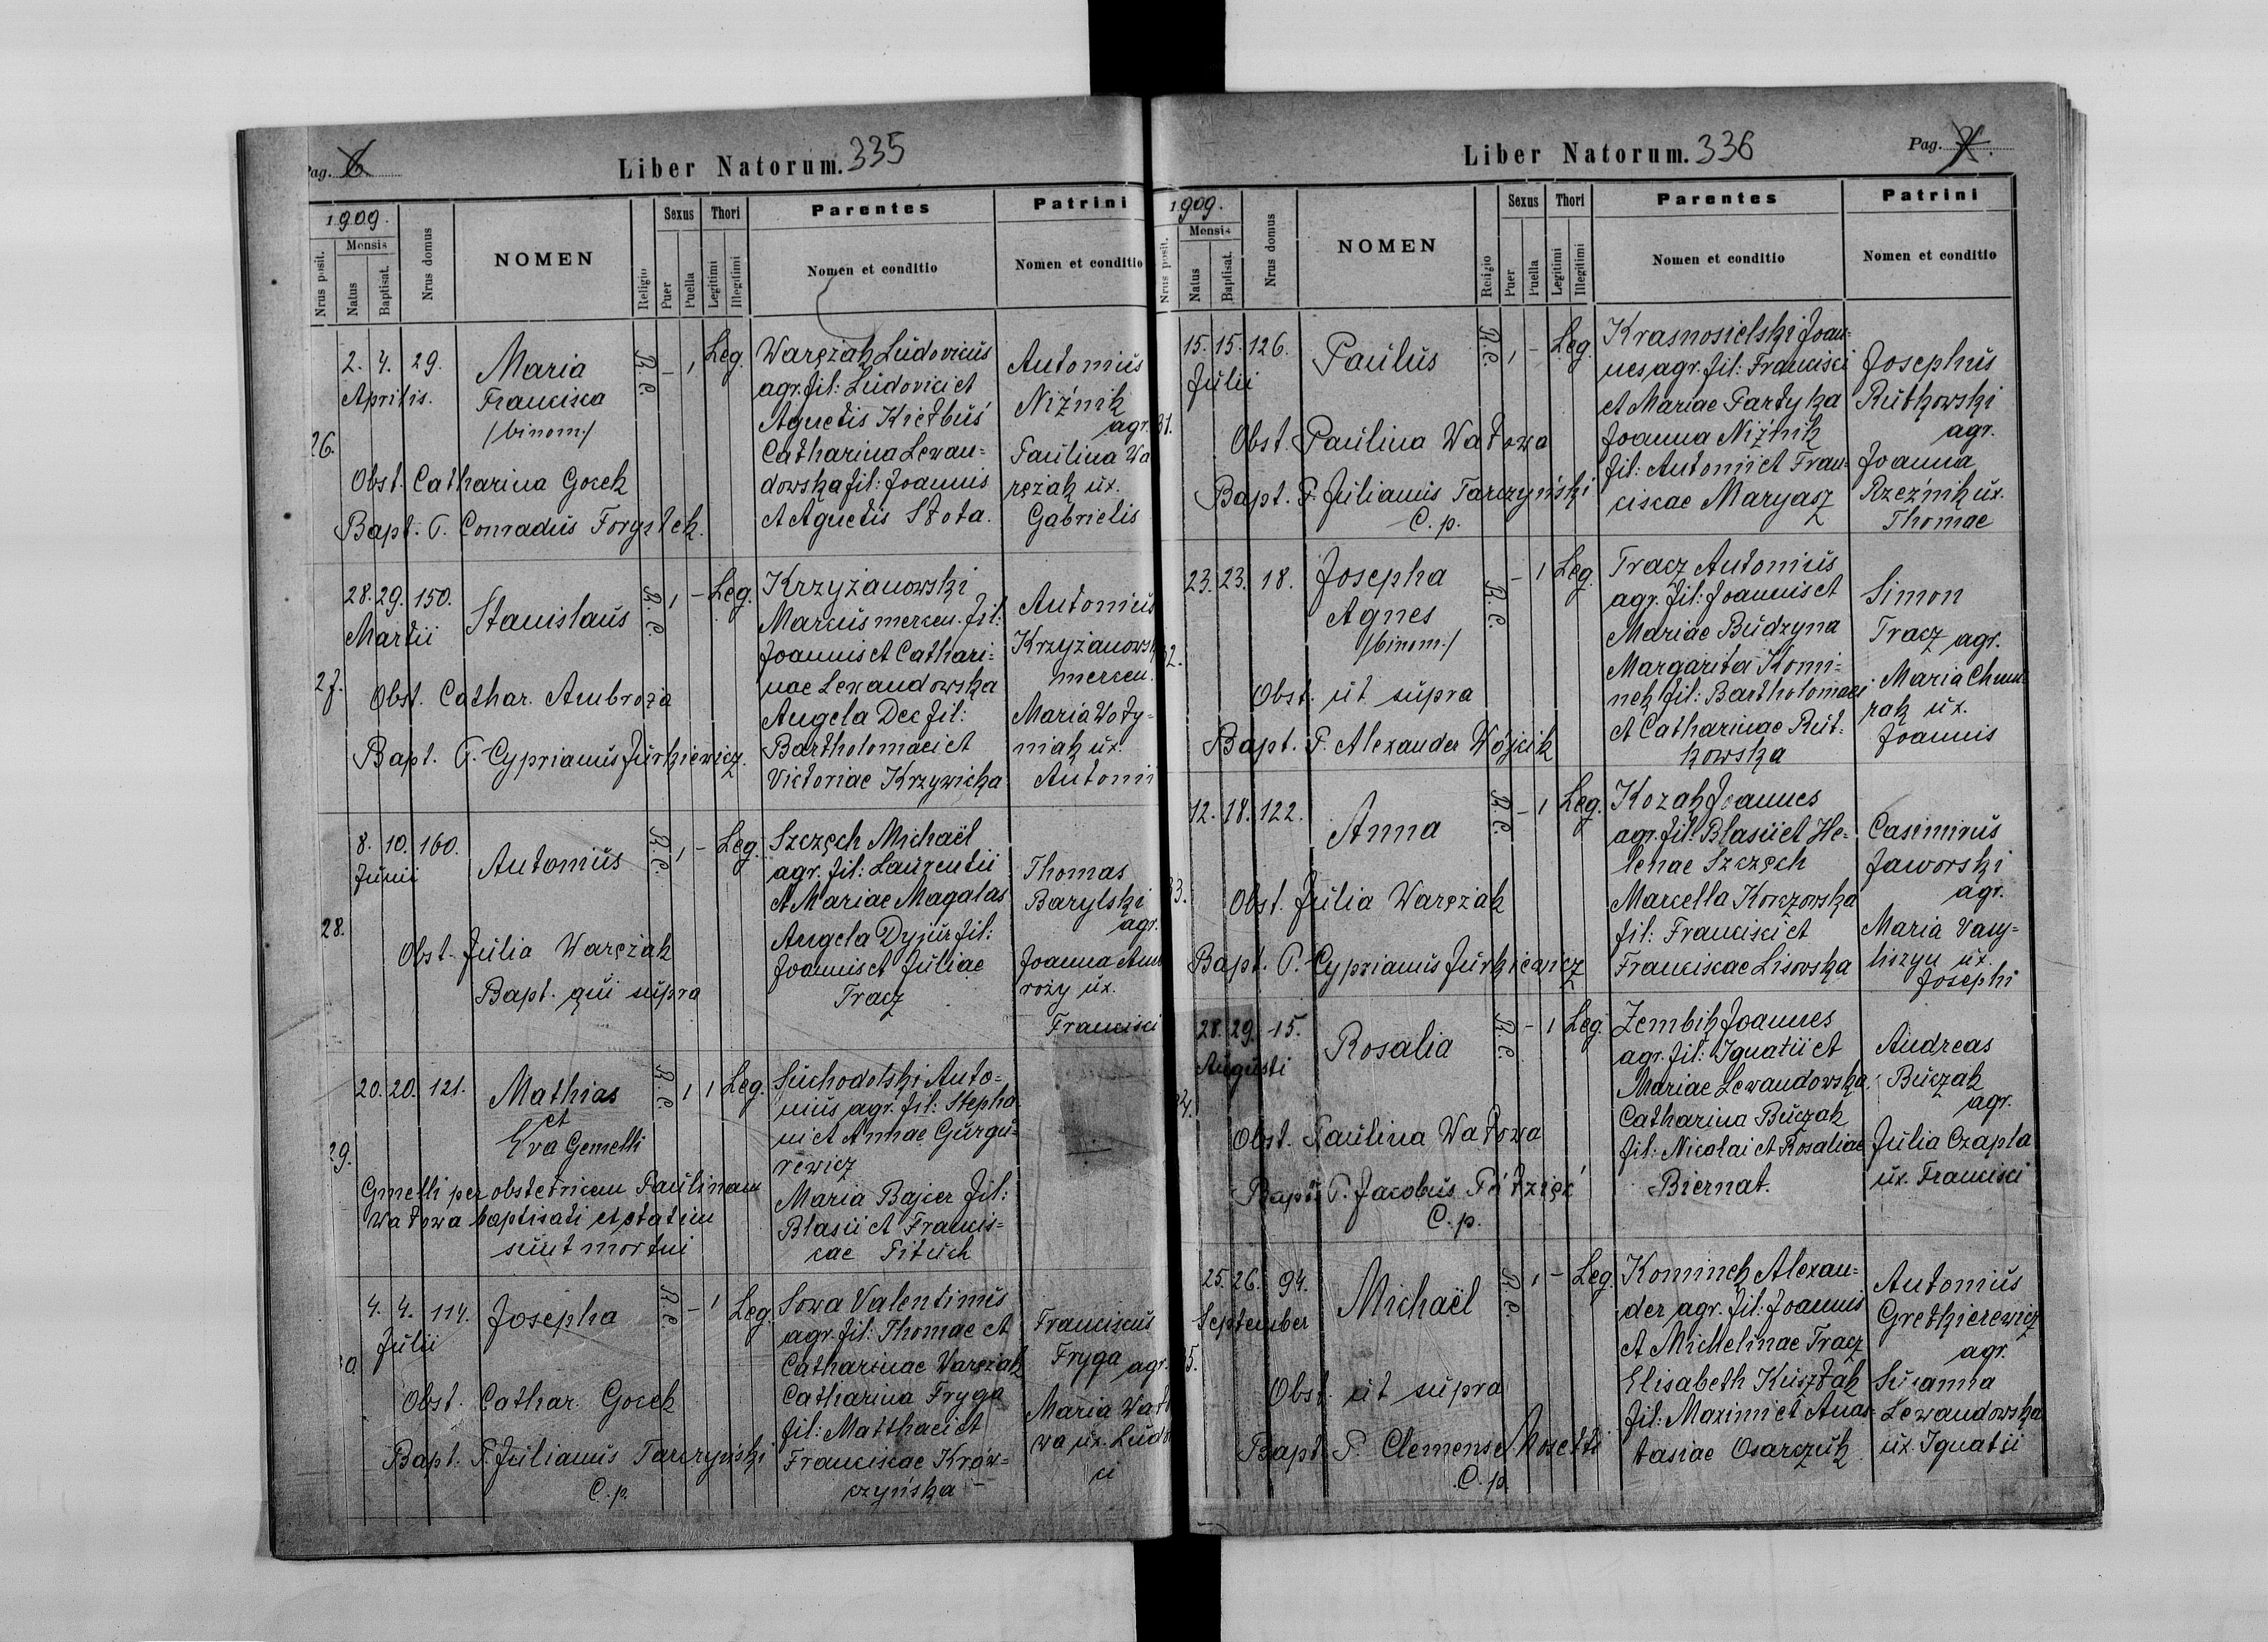 Pag. 6
Liber Natorum. 335
1909.
Nrus posit.
Mensis
Natus
Baptisat.
Nrus domus
NOMEN
Religio
Sexus
Puer
Puella
Thori
Legitimi
Illegitimi
Parentes
Nomen et conditio
Patrini
Nomen et conditio
26.
2. 4. 29.
Aprilis.
Maria
Francisca
/binom./
R. C.
- 1
Leg.
Obst. Catharina Gocek
Bapt. P. Conradus Forystek.
Warężak Ludovicus
agr. fil: Ludovici et
Agnetis Kiełbuś
Catharina Lewan=
dowska fil: Joannis
et Agnetis Słota.
Antonius
Niźnik
agr.
Paulina Wa
rężak ux.
Gabrielis
27.
28. 29. 150.
Martii
Stanislaus
R. C.
1 -
Leg.
Obst. Cathar. Ambroża
Bapt. P. Cyprianus Jurkiewicz.
Krzyżanowski
Marcus mercen. fil:
Joannis et Cathari=
nae Lewandowska
Angela Dec fil:
Bartholomaei et
Victoriae Krzywicka
Antonius
Krzyżanowsk
mercen.
Maria Woły=
niak ux.
Antonii
28.
8. 10. 160.
Junii
Antonius
R. C.
1 -
Leg.
Obst. Julia Warężak
Bapt. qui supra
Szczęch Michaël
agr. fil: Laurentii
et Mariae Magalas
Angela Dyjur fil:
Joannis et Juliae
Tracz
Thomas
Barylski
agr.
Joanna Amb
roży ux.
Francisci
29.
20. 20. 121.
Mathias
et
Eva Gemelli
R. C.
1 1
Leg.
Gmelli per obstetricem Paulinam
Watowa baptisati et statim
sunt mortui
Suchodolski Anto=
nius agr. fil: Stepha
ni et Annae Gurgu=
rewicz
Maria Bajcer fil:
Blasii et Francis=
cae Pituch
4. 4. 114.
Julii
Josepha
R. C.
- 1
Leg.
Obst. Cathar. Gocek
Bapt. P. Julianus Tarczyński
C. p.
Sowa Valentinus
agr. fil: Thomae et
Catharinae Warężak
Catharina Fryga
fil: Matthaei et
Franciscae Krów=
czyńska -
Franciscus
Fryga agr.
Maria Wat
wa ux. Ludo
ci
Liber Natorum. 336
Pag. 7.
1909.
Nrus posit.
Mensis
Natus
Baptisat.
Nrus domus
NOMEN
Religio
Sexus
Puer
Puella
Thori
Legitimi
Illegitimi
Parentes
Nomen et conditio
Patrini
Nomen et conditio
31.
15. 15. 126.
Julii
Paulus
R. C.
1 -
Leg.
Obst. Paulina Watowa
Bapt. P. Julianus Tarczyński
C. p.
Krasnosielski Joan=
nes agr. fil: Francisci
et Mariae Partyka
Joanna Niźnik
fil: Antonii et Fran=
ciscae Maryasz
Josephus
Rutkowski
agr.
Joanna
Rzeźnik ux.
Thomae
32.
23. 23. 18.
Josepha
Agnes
/binom./
R. C.
- 1
Leg.
Obst. ut supra
Bapt. P. Alexander Wójcik
Tracz Antonius
agr. fil: Joannis et
Mariae Budzyna
Margarita Komi=
nek fil: Bartholomaei
et Catharinae Rut=
kowska
Simon
Tracz agr.
Maria Chmu
rak ux.
Joannis
33.
12. 18. 122.
Anna
R. C.
- 1
Leg.
Obst. Julia Warężak
Bapt. P. Cyprianus Jurkiewicz
Kozak Joannes
agr. fil: Blasii et He=
lenae Szczęch
Marcella Korczowska
fil: Francisci et
Franciscae Lisowska
Casimirus
Jaworski
agr.
Maria Vasy=
liszyn ux.
Josephi
34.
28. 29. 15.
Augusti
Rosalia
R. C.
- 1
Leg.
Obst. Paulina Watowa
Bapt. P. Jacobus Półzięć
C. p.
Zembik Joannes
agr. fil: Ignatii et
Mariae Lewandowska
Catharina Buczak
fil: Nicolai et Rosaliae
Biernat.
Andreas
Buczak
agr.
Julia Czapla
ux. Francisci
35.
25. 26. 94.
September
Michaël
R. C.
1 -
Leg.
Obst. ut supra
Bapt. P. Clemens
C. p.
Kominek Alexan=
der agr. fil: Joannis
et Michelinae Tracz
Elisabeth Kusztak
fil: Maximi et Anas=
tasiae Osarczuk
Antonius
Gretkierewicz
agr.
Susanna
Lewandowska
ux. Ignatii